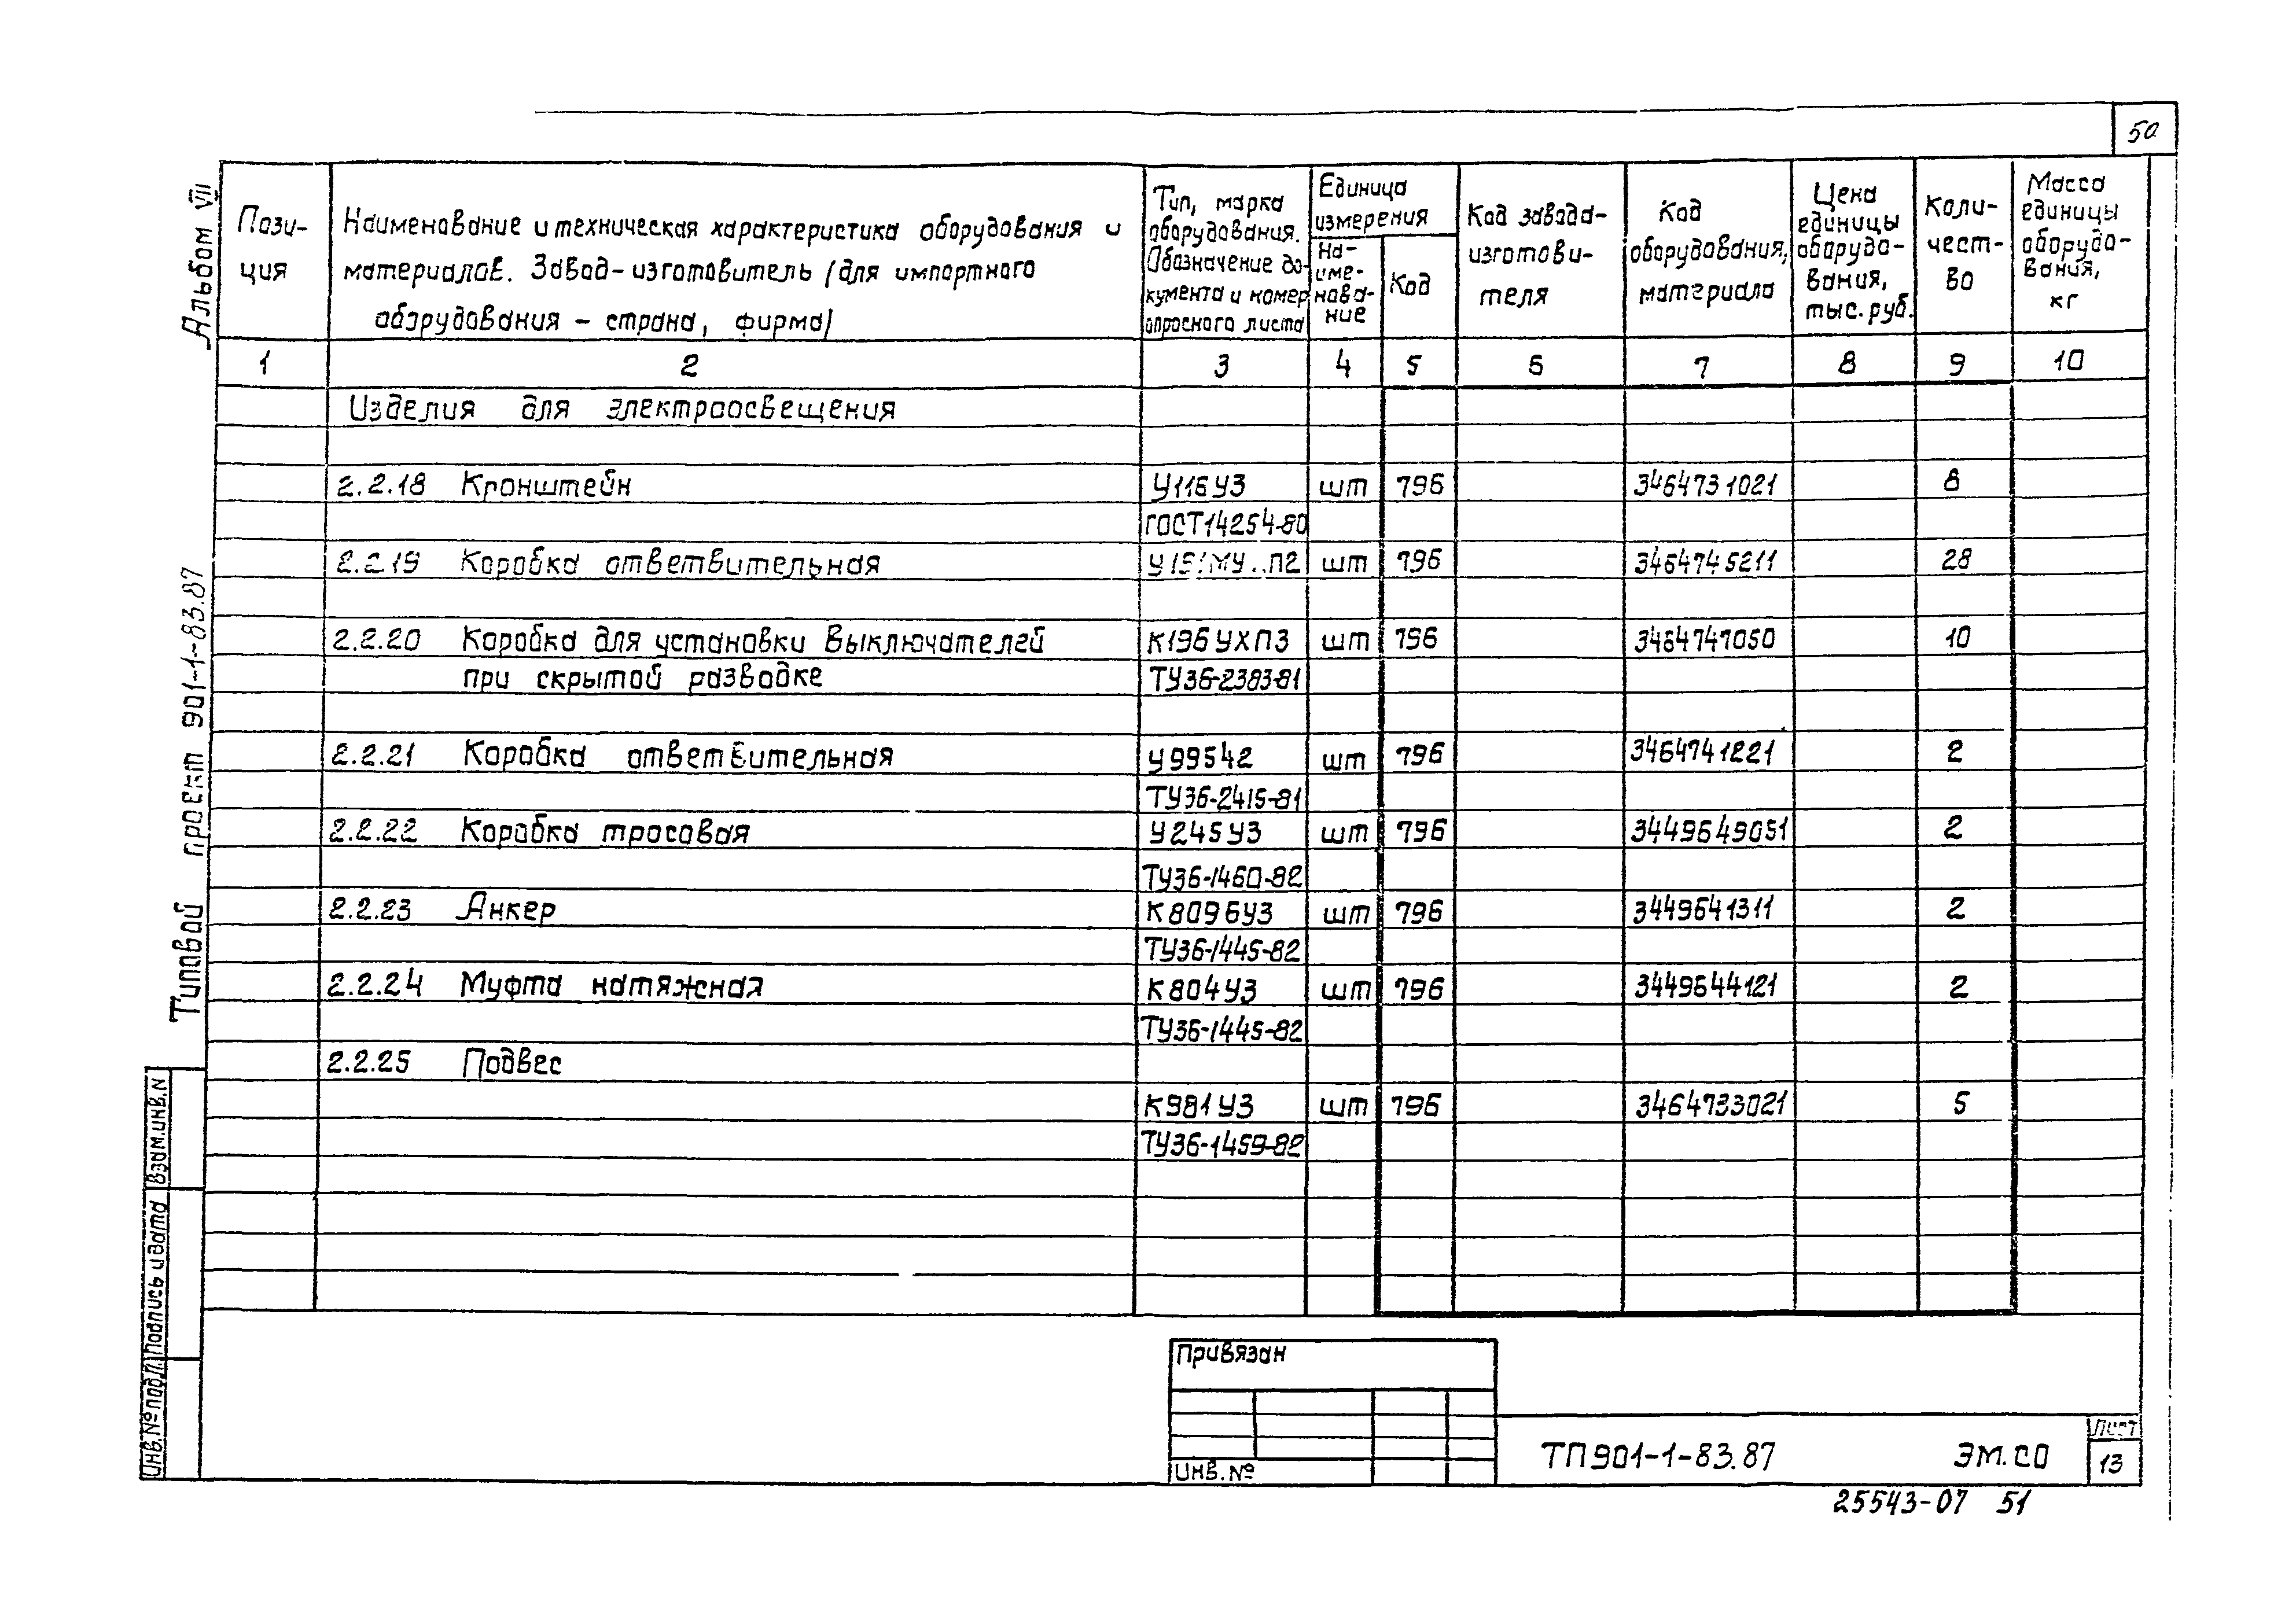 50
Альбом VII
Типовой проект 901-1-83.87
Пози-
ция
Наименование и техническая характеристика оборудования и
материалов. Завод-изготовитель (для импортного
оборудования - страна, фирма)
Тип, марка
оборудования.
Обозначение до-
кумента и номер
опросного листа
Единица
измерения
На-
име-
нова-
ние
Код
Код завода-
изготови-
теля
Код
оборудования,
материала
Цена
единицы
оборудо-
вания,
тыс. руб.
Коли-
чест-
во
Масса
единицы
оборудо-
вания,
кг
1 2 3 4 5 6 7 8 9 10
Изделия для электроосвещения
2.2.18 Кронштейн У116У3 шт 796 3464731021 8
ГОСТ14254-80
2.2.19 Коробка ответвительная шт 796 3464745211 28
2.2.20 Коробка для установки выключателей К196УХП3 шт 796 3464747050 10
при скрытой разводке ТУ36-2383-81
2.2.21 Коробка ответвительная У99542 шт 796 3464741221 2
ТУ36-2415-81
2.2.22 Коробка тросовая У245У3 шт 796 3449649051 2
ТУ36-1460-82
2.2.23 Анкер К8096У3 шт 796 3449641311 2
ТУ36-1445-82
2.2.24 Муфта натяжная К804У3 шт 796 3449644121 2
ТУ36-1445-82
2.2.25 Подвес
К981У3 шт 796 3464733021 5
ТУ36-1459-82
Взам.инв.N
Подпись и дата
Инв.№ подл.
Привязан
Инв. №
ТП901-1-83.87 ЭМ.СО
Лист
13
25543-07 51